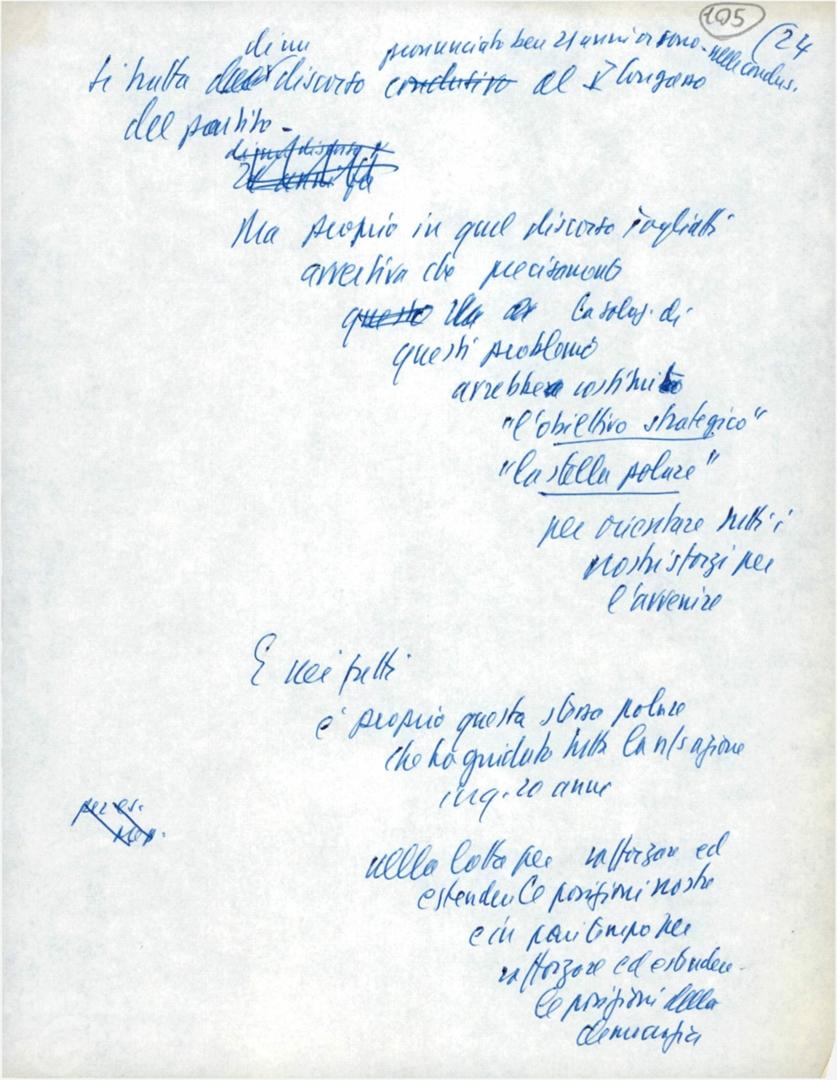 105
(24
di un pronunciato ben 21 anni or sono - nelle conclus.
Si tratta del discorso conclusivo al V Congresso
del partito -
di quel discorso
20 anni fa
Ma proprio in quel discorso Togliatti
avvertiva che precisamente
questo la soluz. di
questi problemi
avrebbe costituito
"l'obiettivo strategico"
"la stella polare"
per orientare tutti i
nostri sforzi per
l'avvenire
E nei fatti
è proprio questa stessa polare
che ha guidato tutta la n/s azione
in q. 20 anni
per es.
nella lotta per rafforzare ed
estendere le posizioni nostre
e in pari tempo per
rafforzare ed estendere
le posizioni della
democrazia